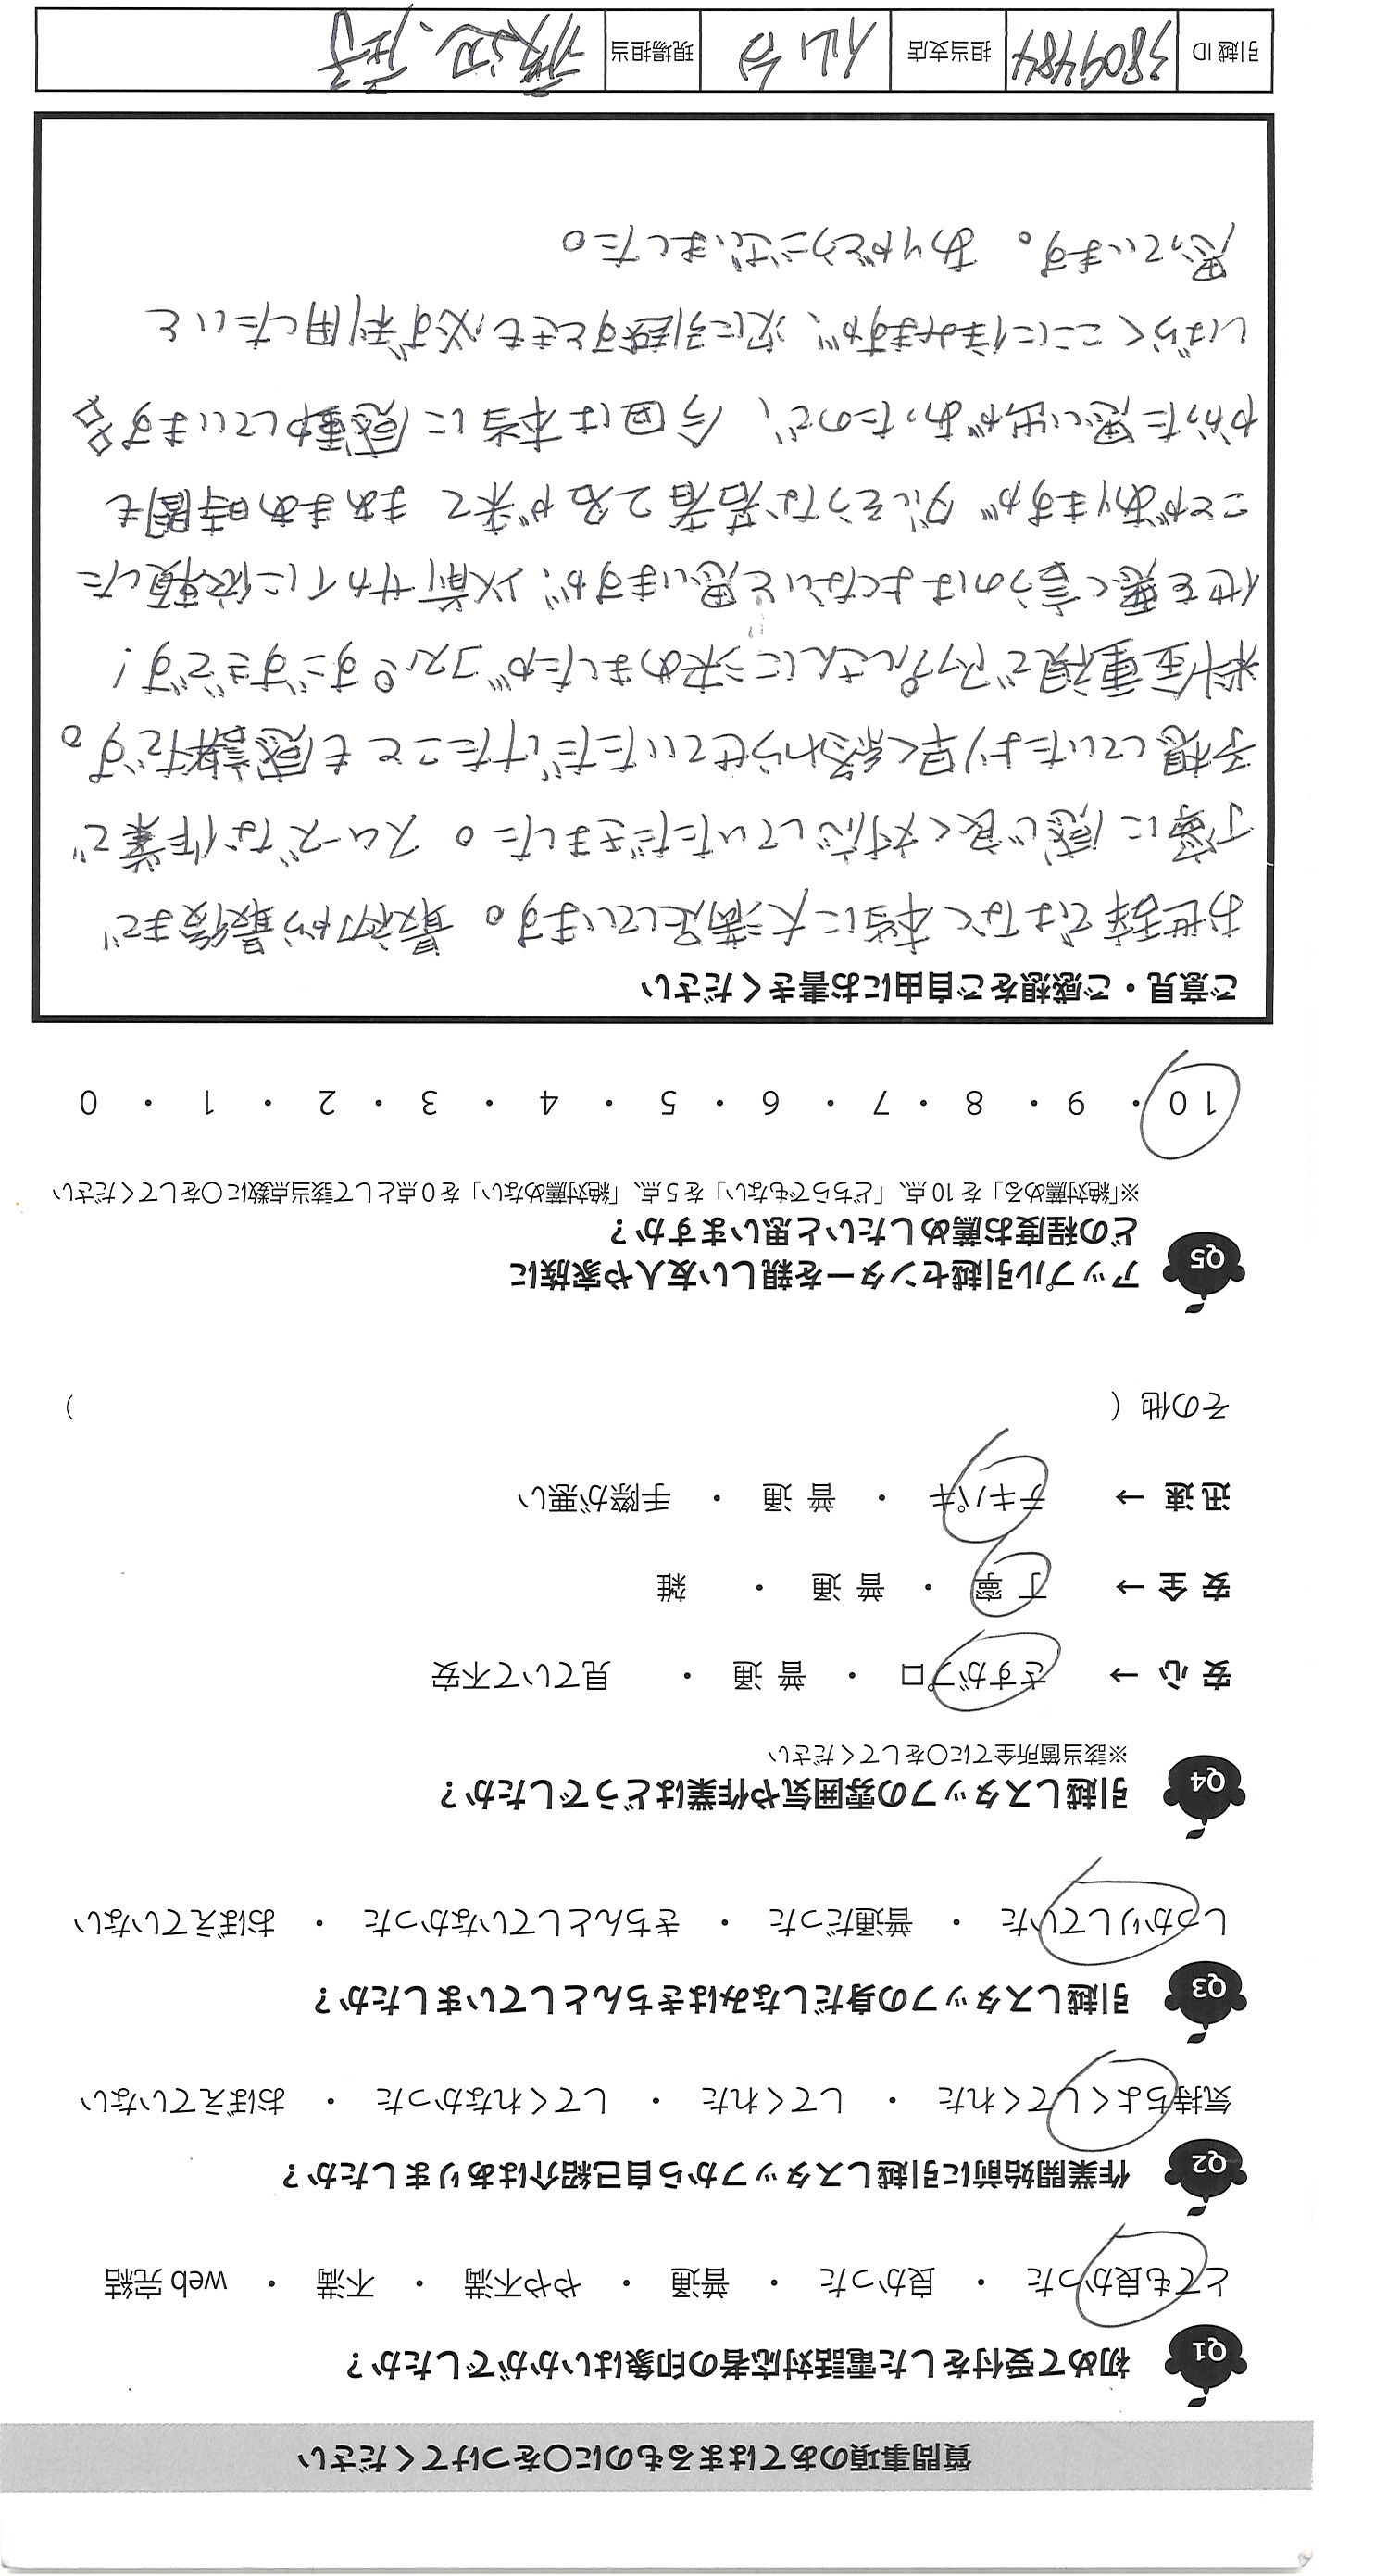 質問事項のあてはまるものに○をつけてください
Q1 初めて受付をした電話対応者の印象はいかがでしたか？
とても良かった ・ 良かった ・ 普通 ・ やや不満 ・ 不満 ・ web 完結
Q2 作業開始前に引越しスタッフから自己紹介はありましたか？
気持ちよくしてくれた ・ してくれた ・ してくれなかった ・ おぼえていない
Q3 引越しスタッフの身だしなみはきちんとしていましたか？
しっかりしていた ・ 普通だった ・ きちんとしていなかった ・ おぼえていない
Q4 引越しスタッフの雰囲気や作業はどうでしたか？
※該当箇所全てに○をしてください
安 心 → さすがプロ ・ 普 通 ・ 見ていて不安
安 全 → 丁 寧 ・ 普 通 ・ 雑
迅 速 → テキパキ ・ 普 通 ・ 手際が悪い
その他 （ ）
Q5 アップル引越センターを親しい友人や家族に
どの程度お薦めしたいと思いますか？
※「絶対薦める」を 10 点、「どちらでもない」を 5 点、「絶対薦めない」を 0 点として該当点数に○をしてください
10 ・ 9 ・ 8 ・ 7 ・ 6 ・ 5 ・ 4 ・ 3 ・ 2 ・ 1 ・ 0
ご意見・ご感想をご自由にお書きください
お世辞ではなく本当に大満足しています。最初から最後まで
丁寧に感じ良く対応していただきました。スムーズな作業で
予想していたより早く終わらせていただけたことも感謝です。
料金重視でアップルさんに決めましたがコスパすごすぎです!
他を悪く言うのはよくないと思いますが、以前サカイに依頼した
ことがありますがダルそうな若者2名が来て まあまあ時間も
かかった思い出があったので、今回は本当に感動しています
しばらくここに住みますが、次に引越すときも必ず利用したいと
思っています。ありがとうございました。
引越 ID 3809484 担当支店 仙台 現場担当 渡辺、